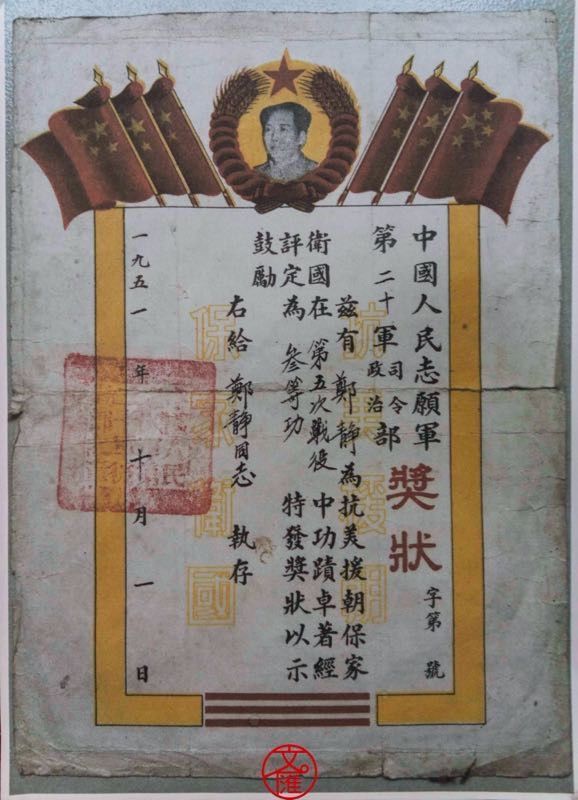 中國人民志願軍
第二十軍司令政治部
獎狀
字第 號
兹有鄭靜為抗美援朝保家
衛國在第五次戰役中功蹟卓著經
評定為叁等功特發獎狀以示
鼓勵
右給鄭靜同志 執存
一九五一年十月一日
抗美援朝
保家衛國
文匯